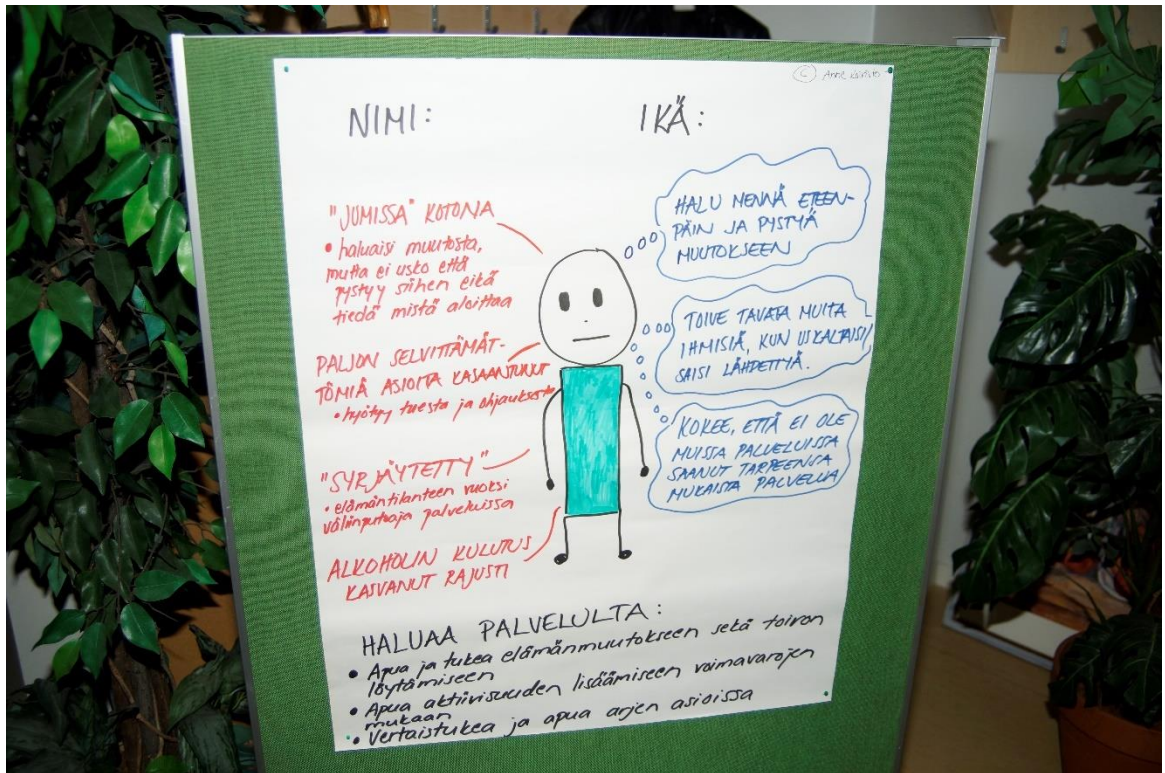 © Anne
NIMI:
IKÄ:
"JUMISSA" KOTONA
• haluaisi muutosta,
mutta ei usko että
pystyy siihen eikä
tiedä mistä aloittaa
PALJON SELVITTÄMÄT-
TÖMIÄ ASIOITA KASAANTUNUT
• hyötyy tuesta ja ohjauksesta
"SYRJÄYTETTY"
• elämäntilanteen vuoksi
väliinputoaja palveluissa
ALKOHOLIN KULUTUS
KASVANUT RAJUSTI
HALU MENNÄ ETEEN-
PÄIN JA PYSTYÄ
MUUTOKSEEN
TOIVE TAVATA MUITA
IHMISIÄ, KUN USKALTAISI/
SAISI LÄHDETTYÄ.
KOKEE, ETTÄ EI OLE
MUISSA PALVELUISSA
SAANUT TARPEENSA
MUKAISTA PALVELUA
HALUAA PALVELULTA:
• Apua ja tukea elämänmuutokseen sekä toivon
löytämiseen
• Apua aktiivisuuden lisäämiseen voimavarojen
mukaan
• Vertaistukea ja apua arjen asioissa